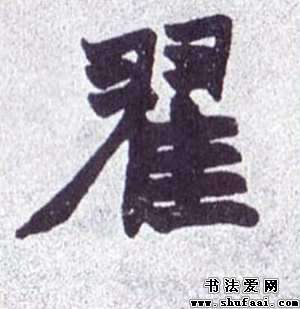 翟
书法爱网
www.shufaai.com